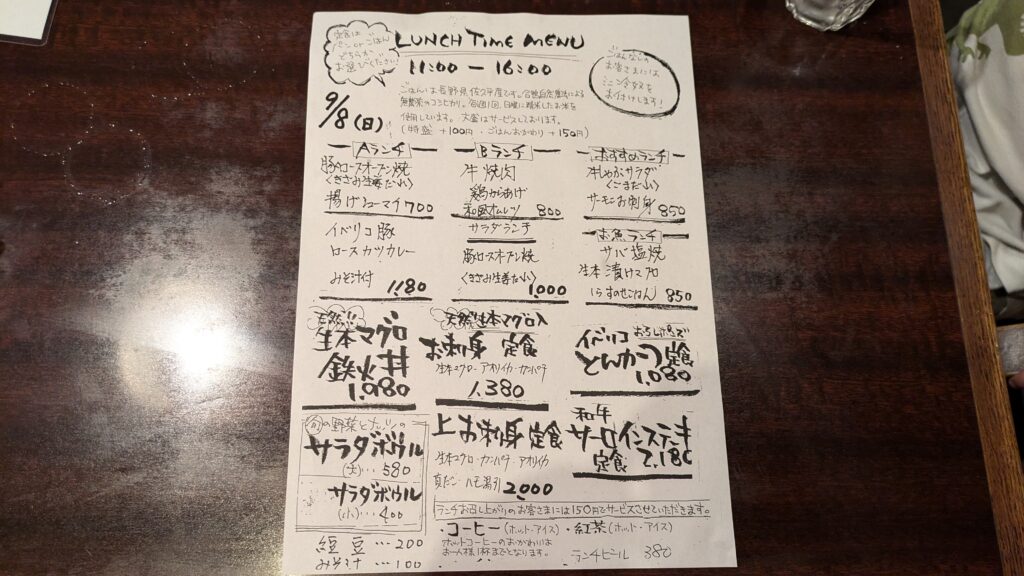 定食は
パン or ごはん
どちらか
お選びください!
LUNCH TIME MENU
11:00 ー 16:00
ごはんなしの
お客さまには
ミニ冷奴を
お付けします!
9/8(日)
ごはんは長野県佐久平産です。
無農薬のコシヒカリ。毎週1回、日曜に精米したお米を
使用しています。大盛はサービスしております。
(特盛 +100円・ごはんおかわり +150円)
Aランチ
豚肩ロースオーブン焼
<きざみ生姜だれ>
揚げシューマイ 700
Bランチ
牛焼肉
鶏からあげ
和風オムレツ 800
おすすめランチ
牛しゃぶサラダ
<ごまだれ>
サーモンお刺身 850
イベリコ豚
ロースカツカレー
みそ汁付 1,180
サラダランチ
豚肩ロースオーブン焼
<きざみ生姜だれ>
1,000
お魚ランチ
サバ塩焼
生本漬けマグロ
しらすのせごはん 850
天然!!
生本マグロ
鉄火丼
1,980
天然生本マグロ入
お刺身 定食
生本マグロ・アオリイカ・カンパチ
1,380
イベリコ おろしポン酢で
とんかつ定食
1,080
旬の野菜とナッツの
サラダボウル
(大)…580
サラダボウル
(小)…400
上お刺身定食
生本マグロ・カンパチ・アオリイカ
真だこ・ハモ湯引
2,000
和牛
サーロインステーキ
定食 2,180
ランチお召し上がりのお客さまには150円でサービスさせていただきます。
コーヒー(ホット・アイス)・紅茶(ホット・アイス)
ホットコーヒーのおかわりは
お一人様1杯までとなります。
ランチビール 380
納豆…200
みそ汁…100